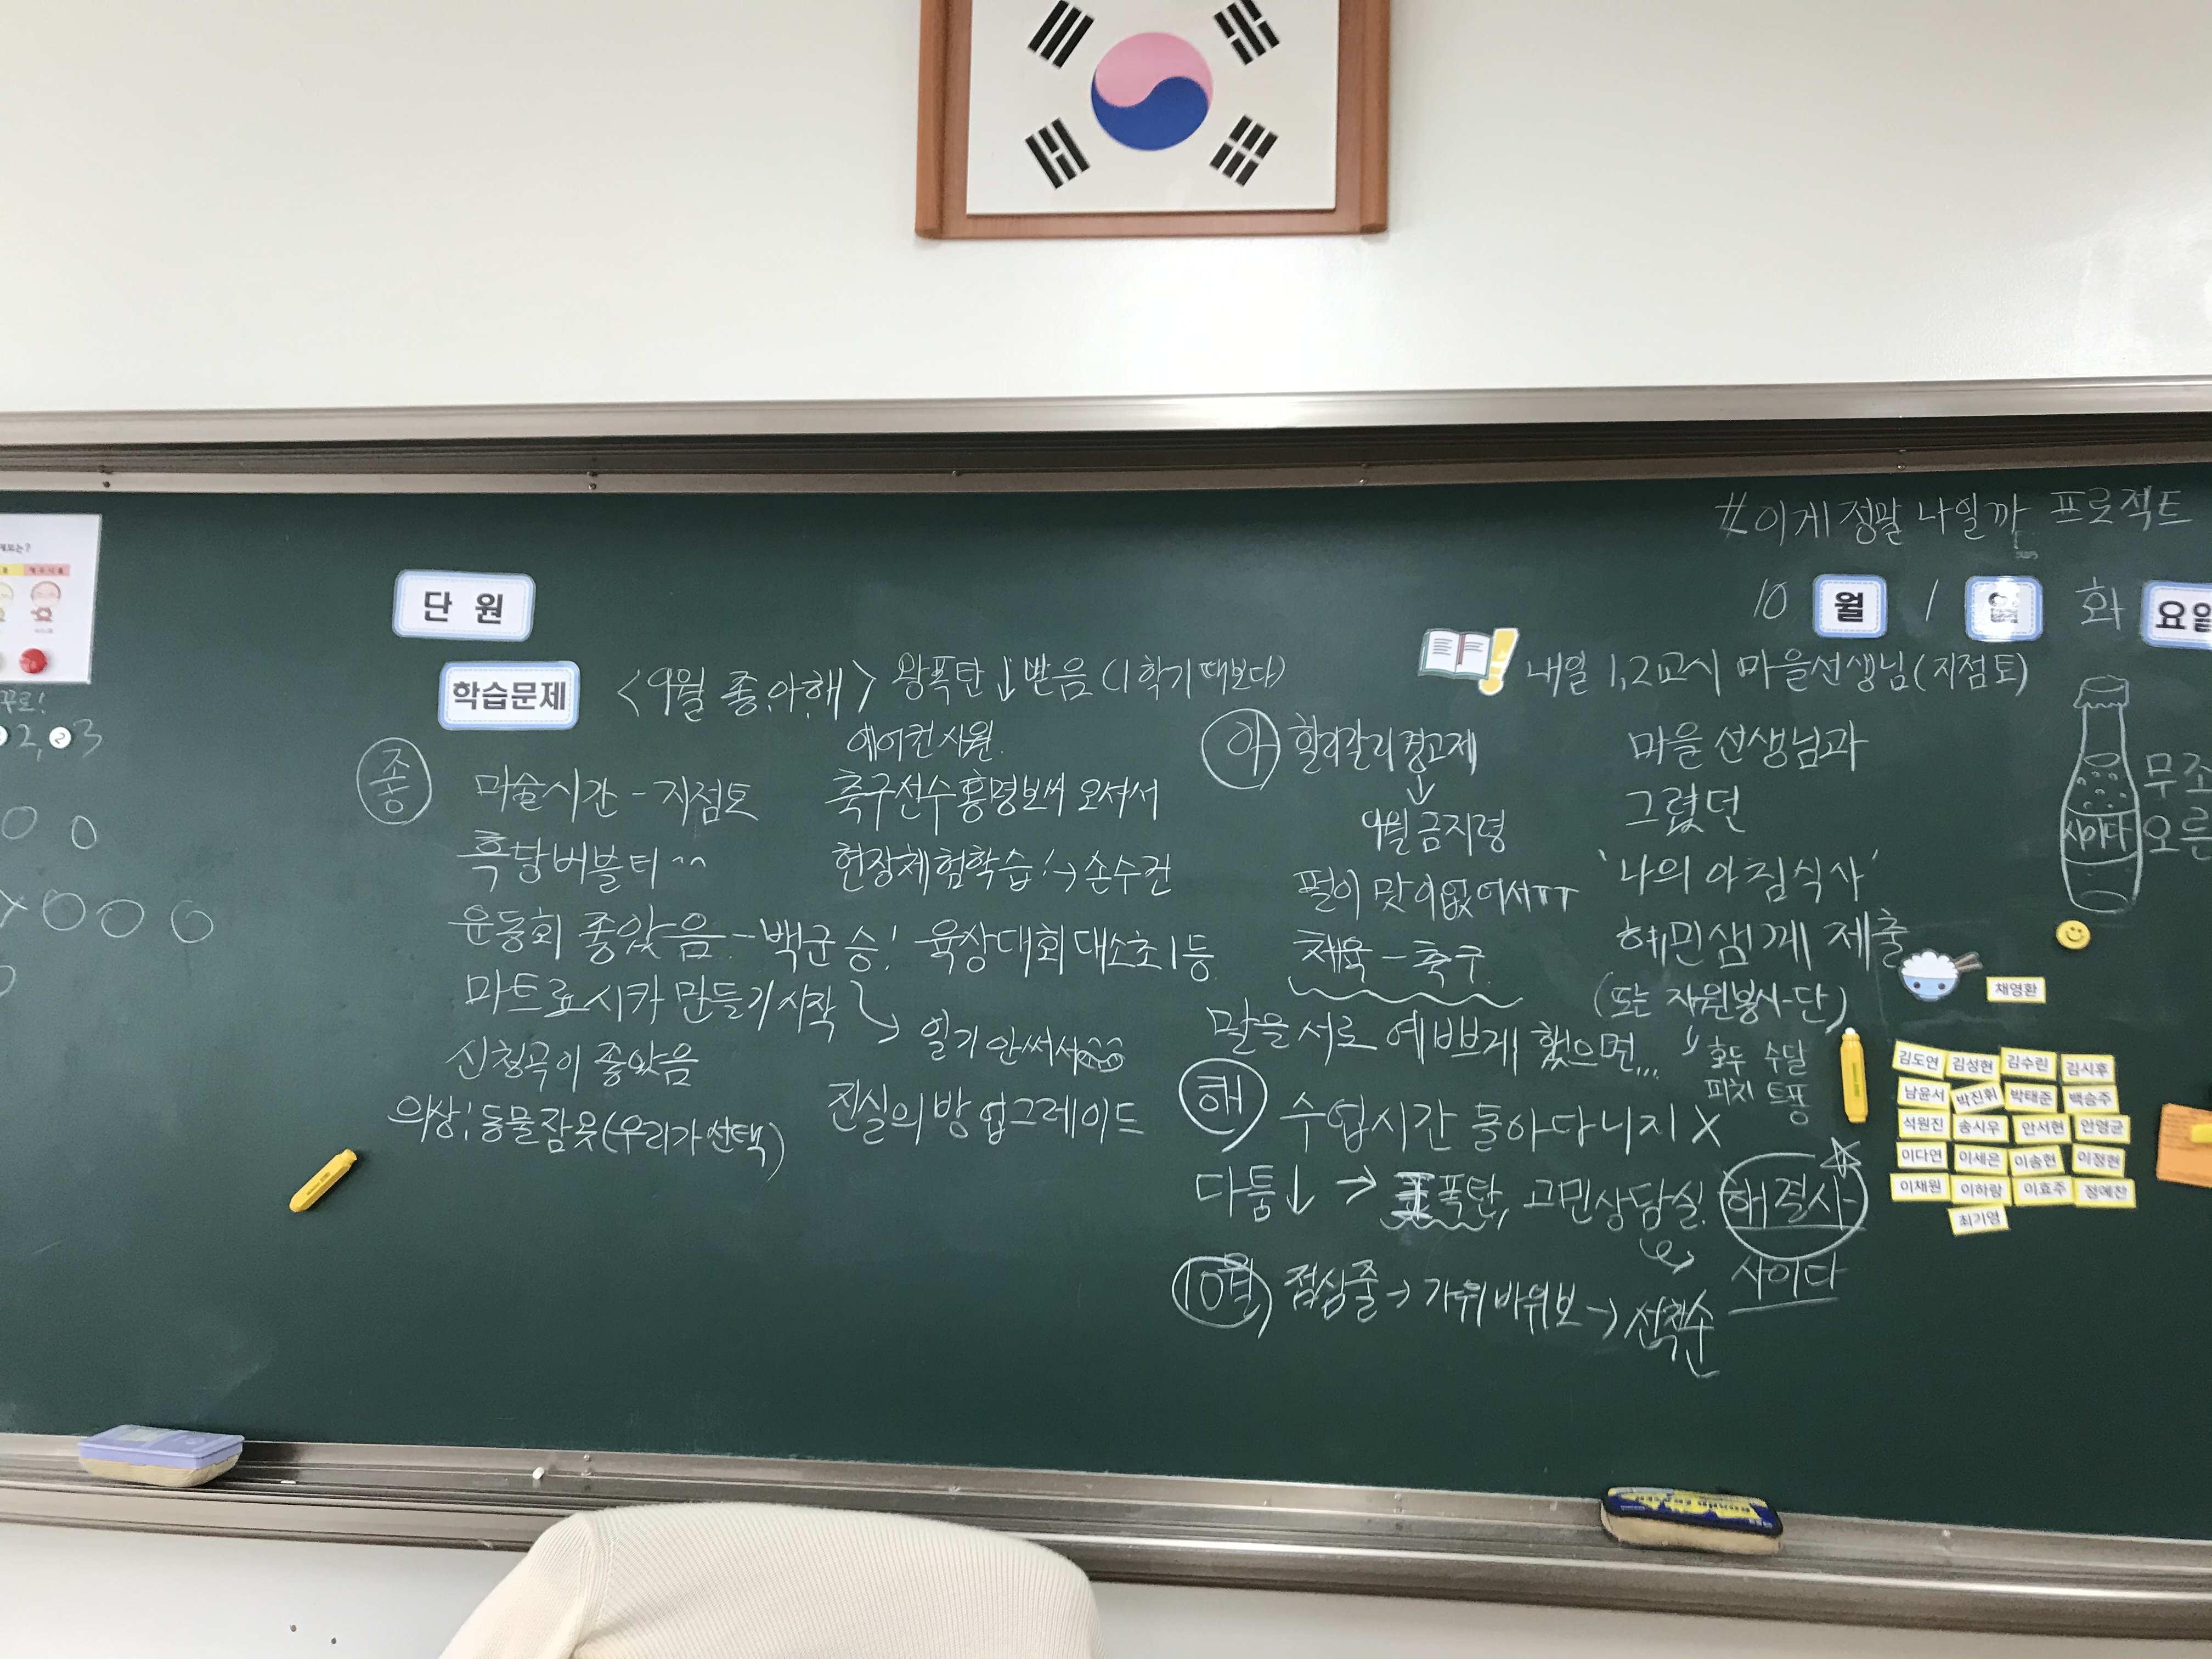 #이게 정말 나일까 프로젝트
10 월 1 일 화 요일
단 원
학습문제
<9월 좋.아.해> 왕폭탄↓받음 (1학기 때보다)
좋
미술시간 - 지점토
흑당버블티^^
운동회 좋았음 - 백군 승!
마트료시카 만들기 시작
신청곡이 좋았음
의상: 동물잠옷(우리가 선택)
에어컨 시원.
축구선수 홍명보씨 오셔서
현장체험학습!→손수건
육상대회 대소초 1등
일기 안써서
진실의 방 업그레이드
아 할리갈리 경고제
↓
9월 금지령
펄이 맛이 없어서ㅠㅠ
체육 - 축구
말을 서로 예쁘게 했으면...
해 수업시간 돌아다니지 X
다툼↓ → 폭탄, 고민상담실. 해결사
사이다
10월 점심줄→가위바위보→선착순
내일 1,2교시 마을선생님(지점토)
마을선생님과
그렸던
'나의 아침식사'
혜민샘께 제출
(또는 자원봉사단)
호두 수달
피치 트풍
사이다
무조
오른
채영환
김도연 김성현 김수린 김시후
남윤서 박진휘 박태준 백승주
석원진 송시우 안서현 안영균
이다연 이세은 이송현 이정현
이채원 이하랑 이효주 정예찬
최기영
꾸로!
2, 2 3